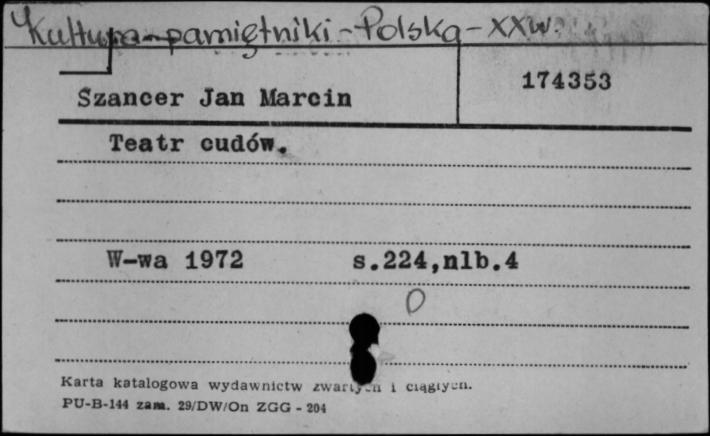 Kultura-pamiętniki-Polska-XXw.
174353
Szancer Jan Marcin
Teatr cudów.
W-wa 1972 s.224,nlb.4
O
Karta katalogowa wydawnictw zwartych i ciągłych.
PU-B-144 zam. 29/DW/On ZGG - 204